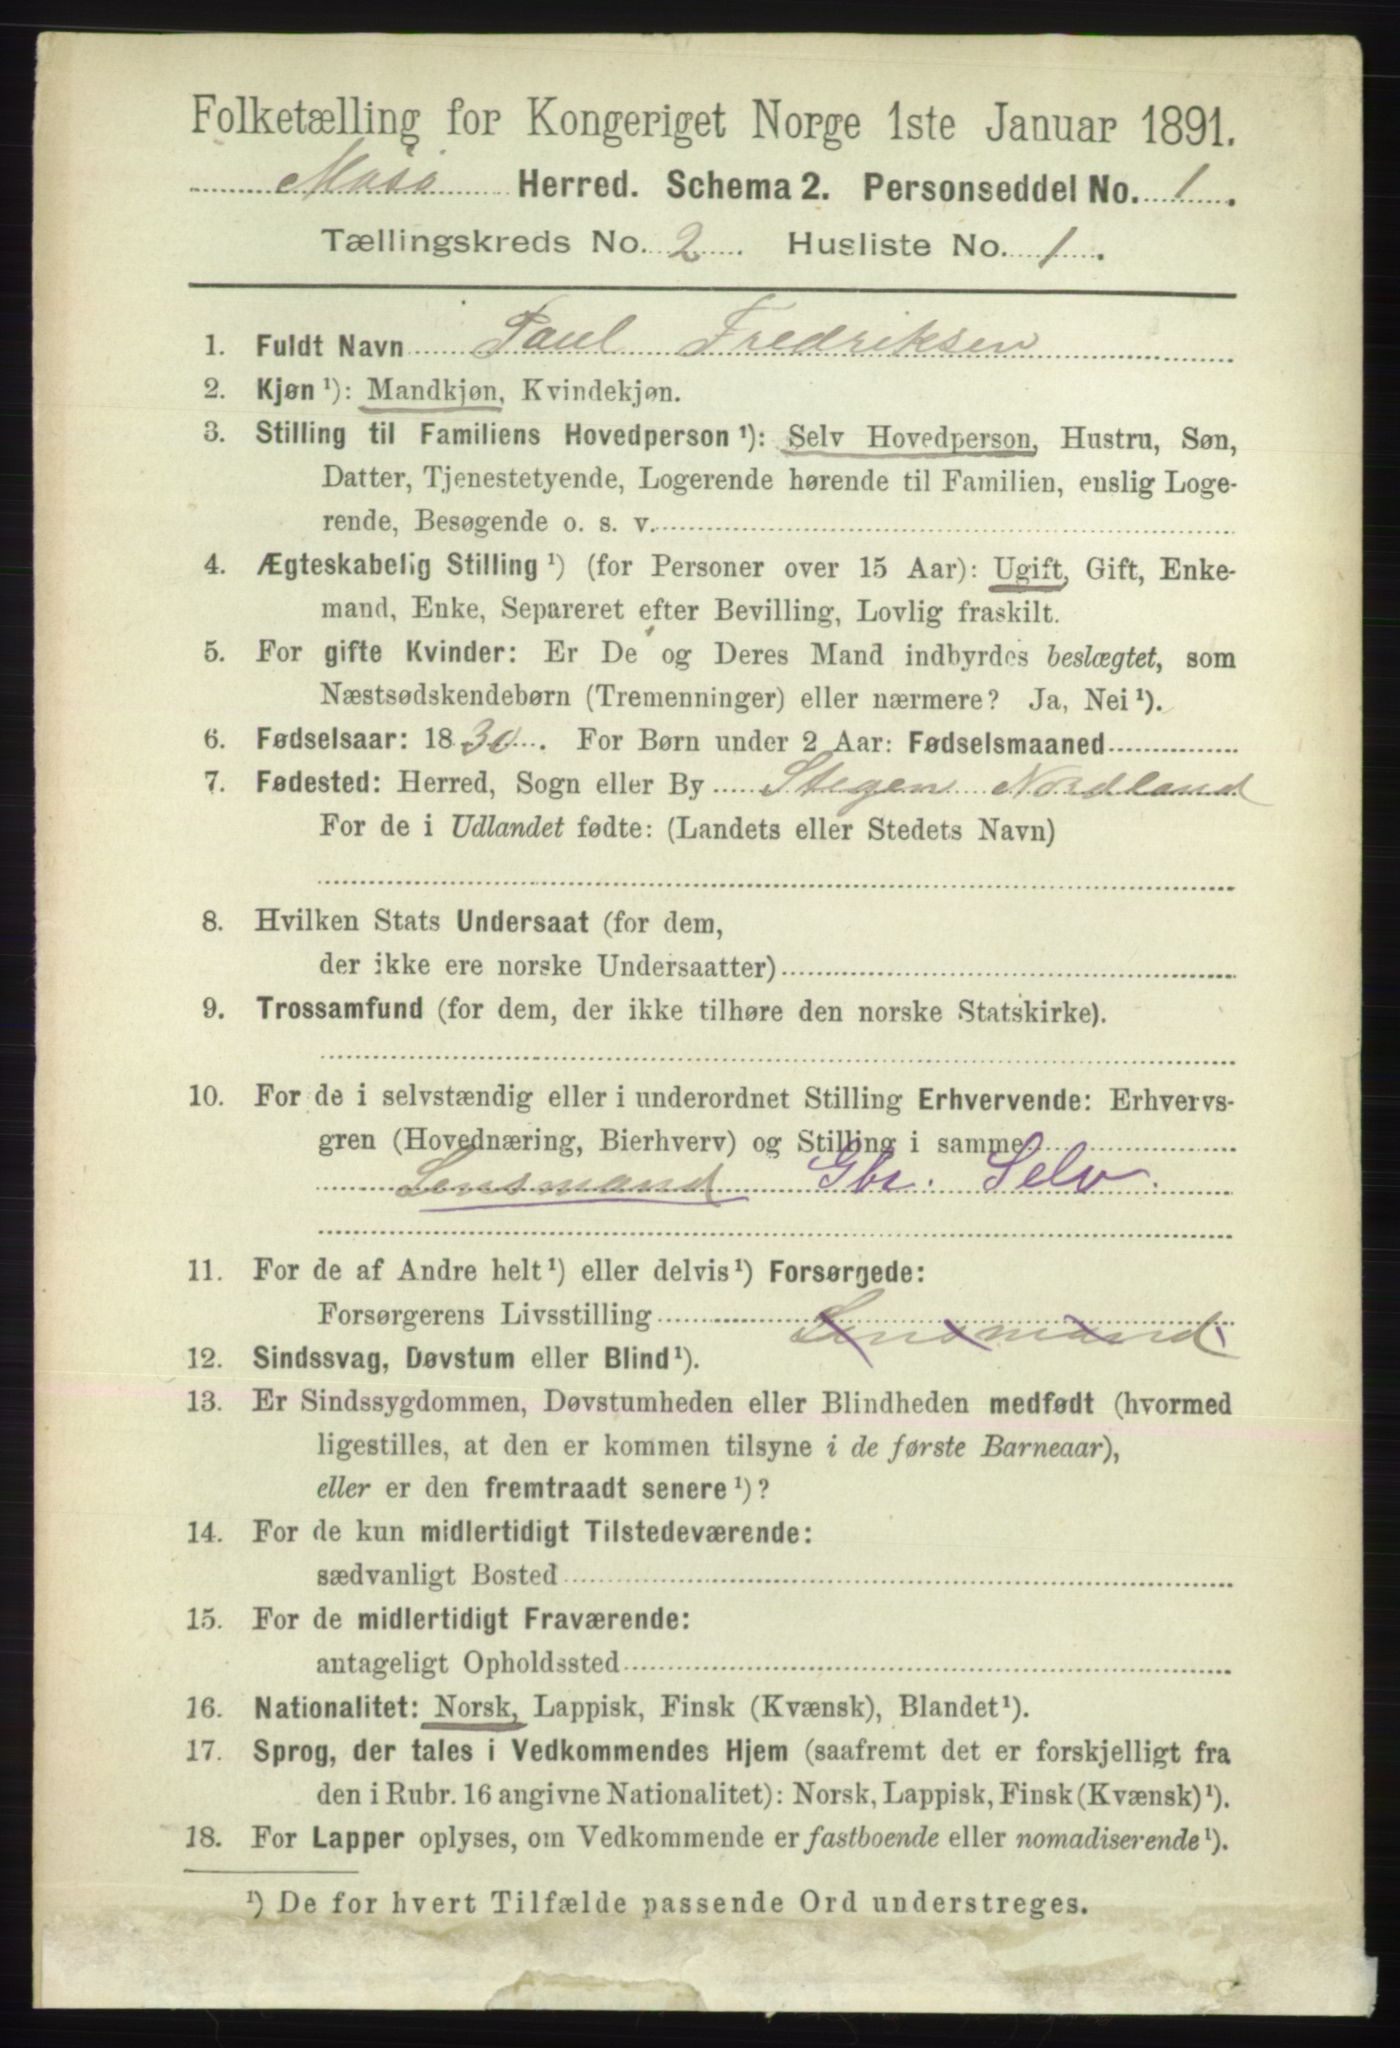 Folketælling for Kongeriget Norge 1ste Januar 1891.
Masø Herred. Schema 2. Personseddel No. 1.
Tællingskreds No. 2. Husliste No. 1.
1. Fuldt Navn Paul Fredriksen
2. Kjøn ¹): Mandkjøn, Kvindekjøn.
3. Stilling til Familiens Hovedperson ¹): Selv Hovedperson, Hustru, Søn,
Datter, Tjenestetyende, Logerende hørende til Familien, enslig Loge-
rende, Besøgende o. s. v.
4. Ægteskabelig Stilling ¹) (for Personer over 15 Aar): Ugift, Gift, Enke-
mand, Enke, Separeret efter Bevilling, Lovlig fraskilt.
5. For gifte Kvinder: Er De og Deres Mand indbyrdes beslægtet, som
Næstsødskendebørn (Tremenninger) eller nærmere? Ja, Nei ¹).
6. Fødselsaar: 1830. For Børn under 2 Aar: Fødselsmaaned
7. Fødested: Herred, Sogn eller By Stegen Nordland
For de i Udlandet fødte: (Landets eller Stedets Navn)
8. Hvilken Stats Undersaat (for dem,
der ikke ere norske Undersaatter)
9. Trossamfund (for dem, der ikke tilhøre den norske Statskirke).
10. For de i selvstændig eller i underordnet Stilling Erhvervende: Erhvervs-
gren (Hovednæring, Bierhverv) og Stilling i samme
Lensmand Gbr. Selv.
11. For de af Andre helt ¹) eller delvis ¹) Forsørgede:
Forsørgerens Livsstilling Lensmand
12. Sindssvag, Døvstum eller Blind ¹).
13. Er Sindssygdommen, Døvstumheden eller Blindheden medfødt (hvormed
ligestilles, at den er kommen tilsyne i de første Barneaar),
eller er den fremtraadt senere ¹)?
14. For de kun midlertidigt Tilstedeværende:
sædvanligt Bosted
15. For de midlertidigt Fraværende:
antageligt Opholdssted
16. Nationalitet: Norsk, Lappisk, Finsk (Kvænsk), Blandet ¹).
17. Sprog, der tales i Vedkommendes Hjem (saafremt det er forskjelligt fra
den i Rubr. 16 angivne Nationalitet): Norsk, Lappisk, Finsk (Kvænsk) ¹).
18. For Lapper oplyses, om Vedkommende er fastboende eller nomadiserende ¹).
¹) De for hvert Tilfælde passende Ord understreges.